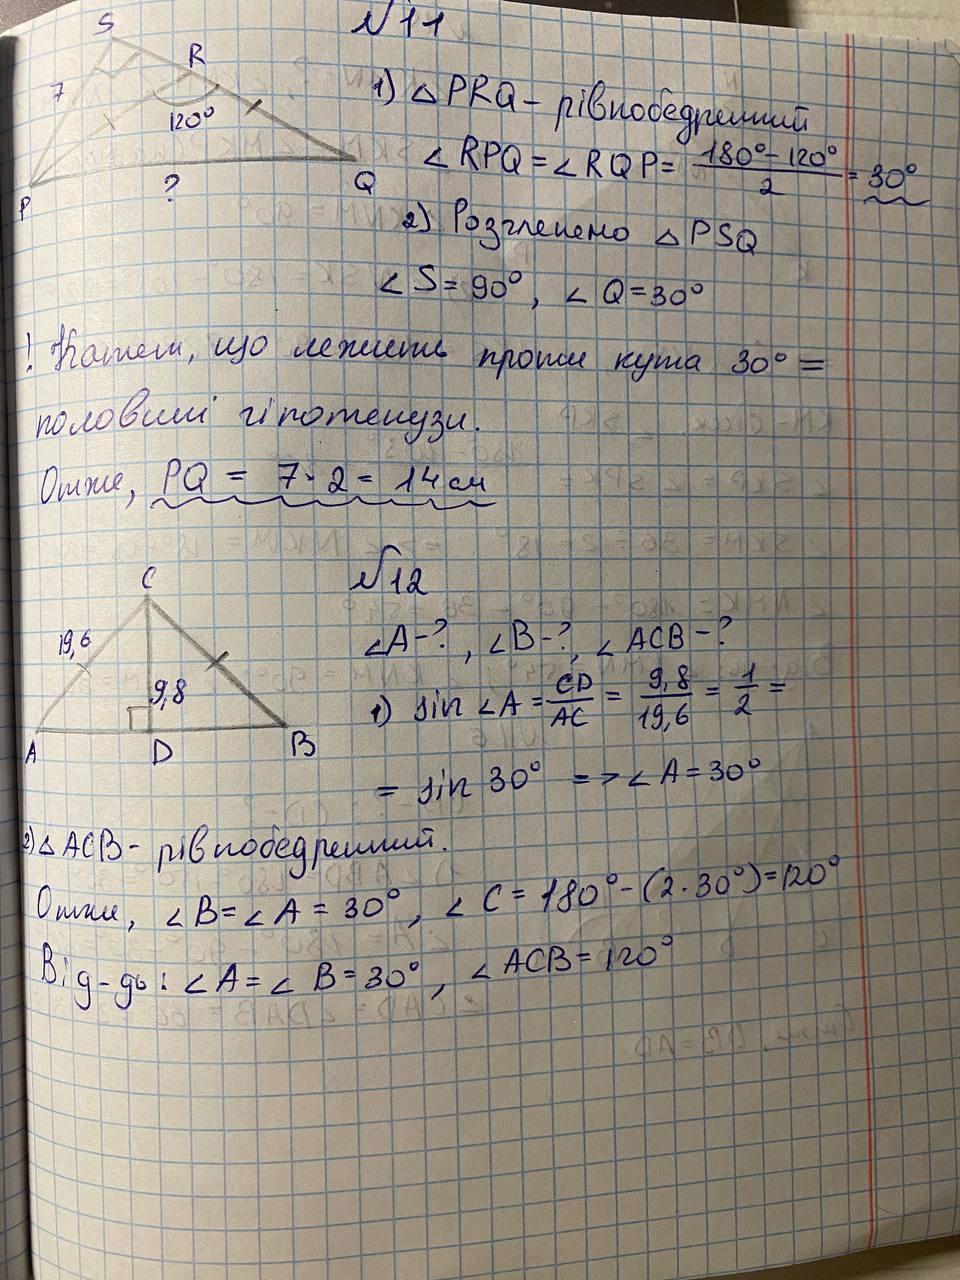 №11
S
R
7
120°
P
?
Q
1) △PRQ - рівнобедренний
∠RPQ = ∠RQP = (180° - 120°)/2 = 30°
2) Розгленемо △PSQ
∠S = 90°, ∠Q = 30°
! Катет, що лежить проти кута 30° =
половині гіпотенузи.
Отже, PQ = 7 · 2 = 14 см
№12
C
19,6
9,8
A
D
B
∠A - ?, ∠B - ?, ∠ACB - ?
1) sin ∠A = CD/AC = 9,8/19,6 = 1/2 =
= sin 30° => ∠A = 30°
2) △ACB - рівнобедренний.
Отже, ∠B = ∠A = 30°, ∠C = 180° - (2 · 30°) = 120°
Від-дь: ∠A = ∠B = 30°, ∠ACB = 120°